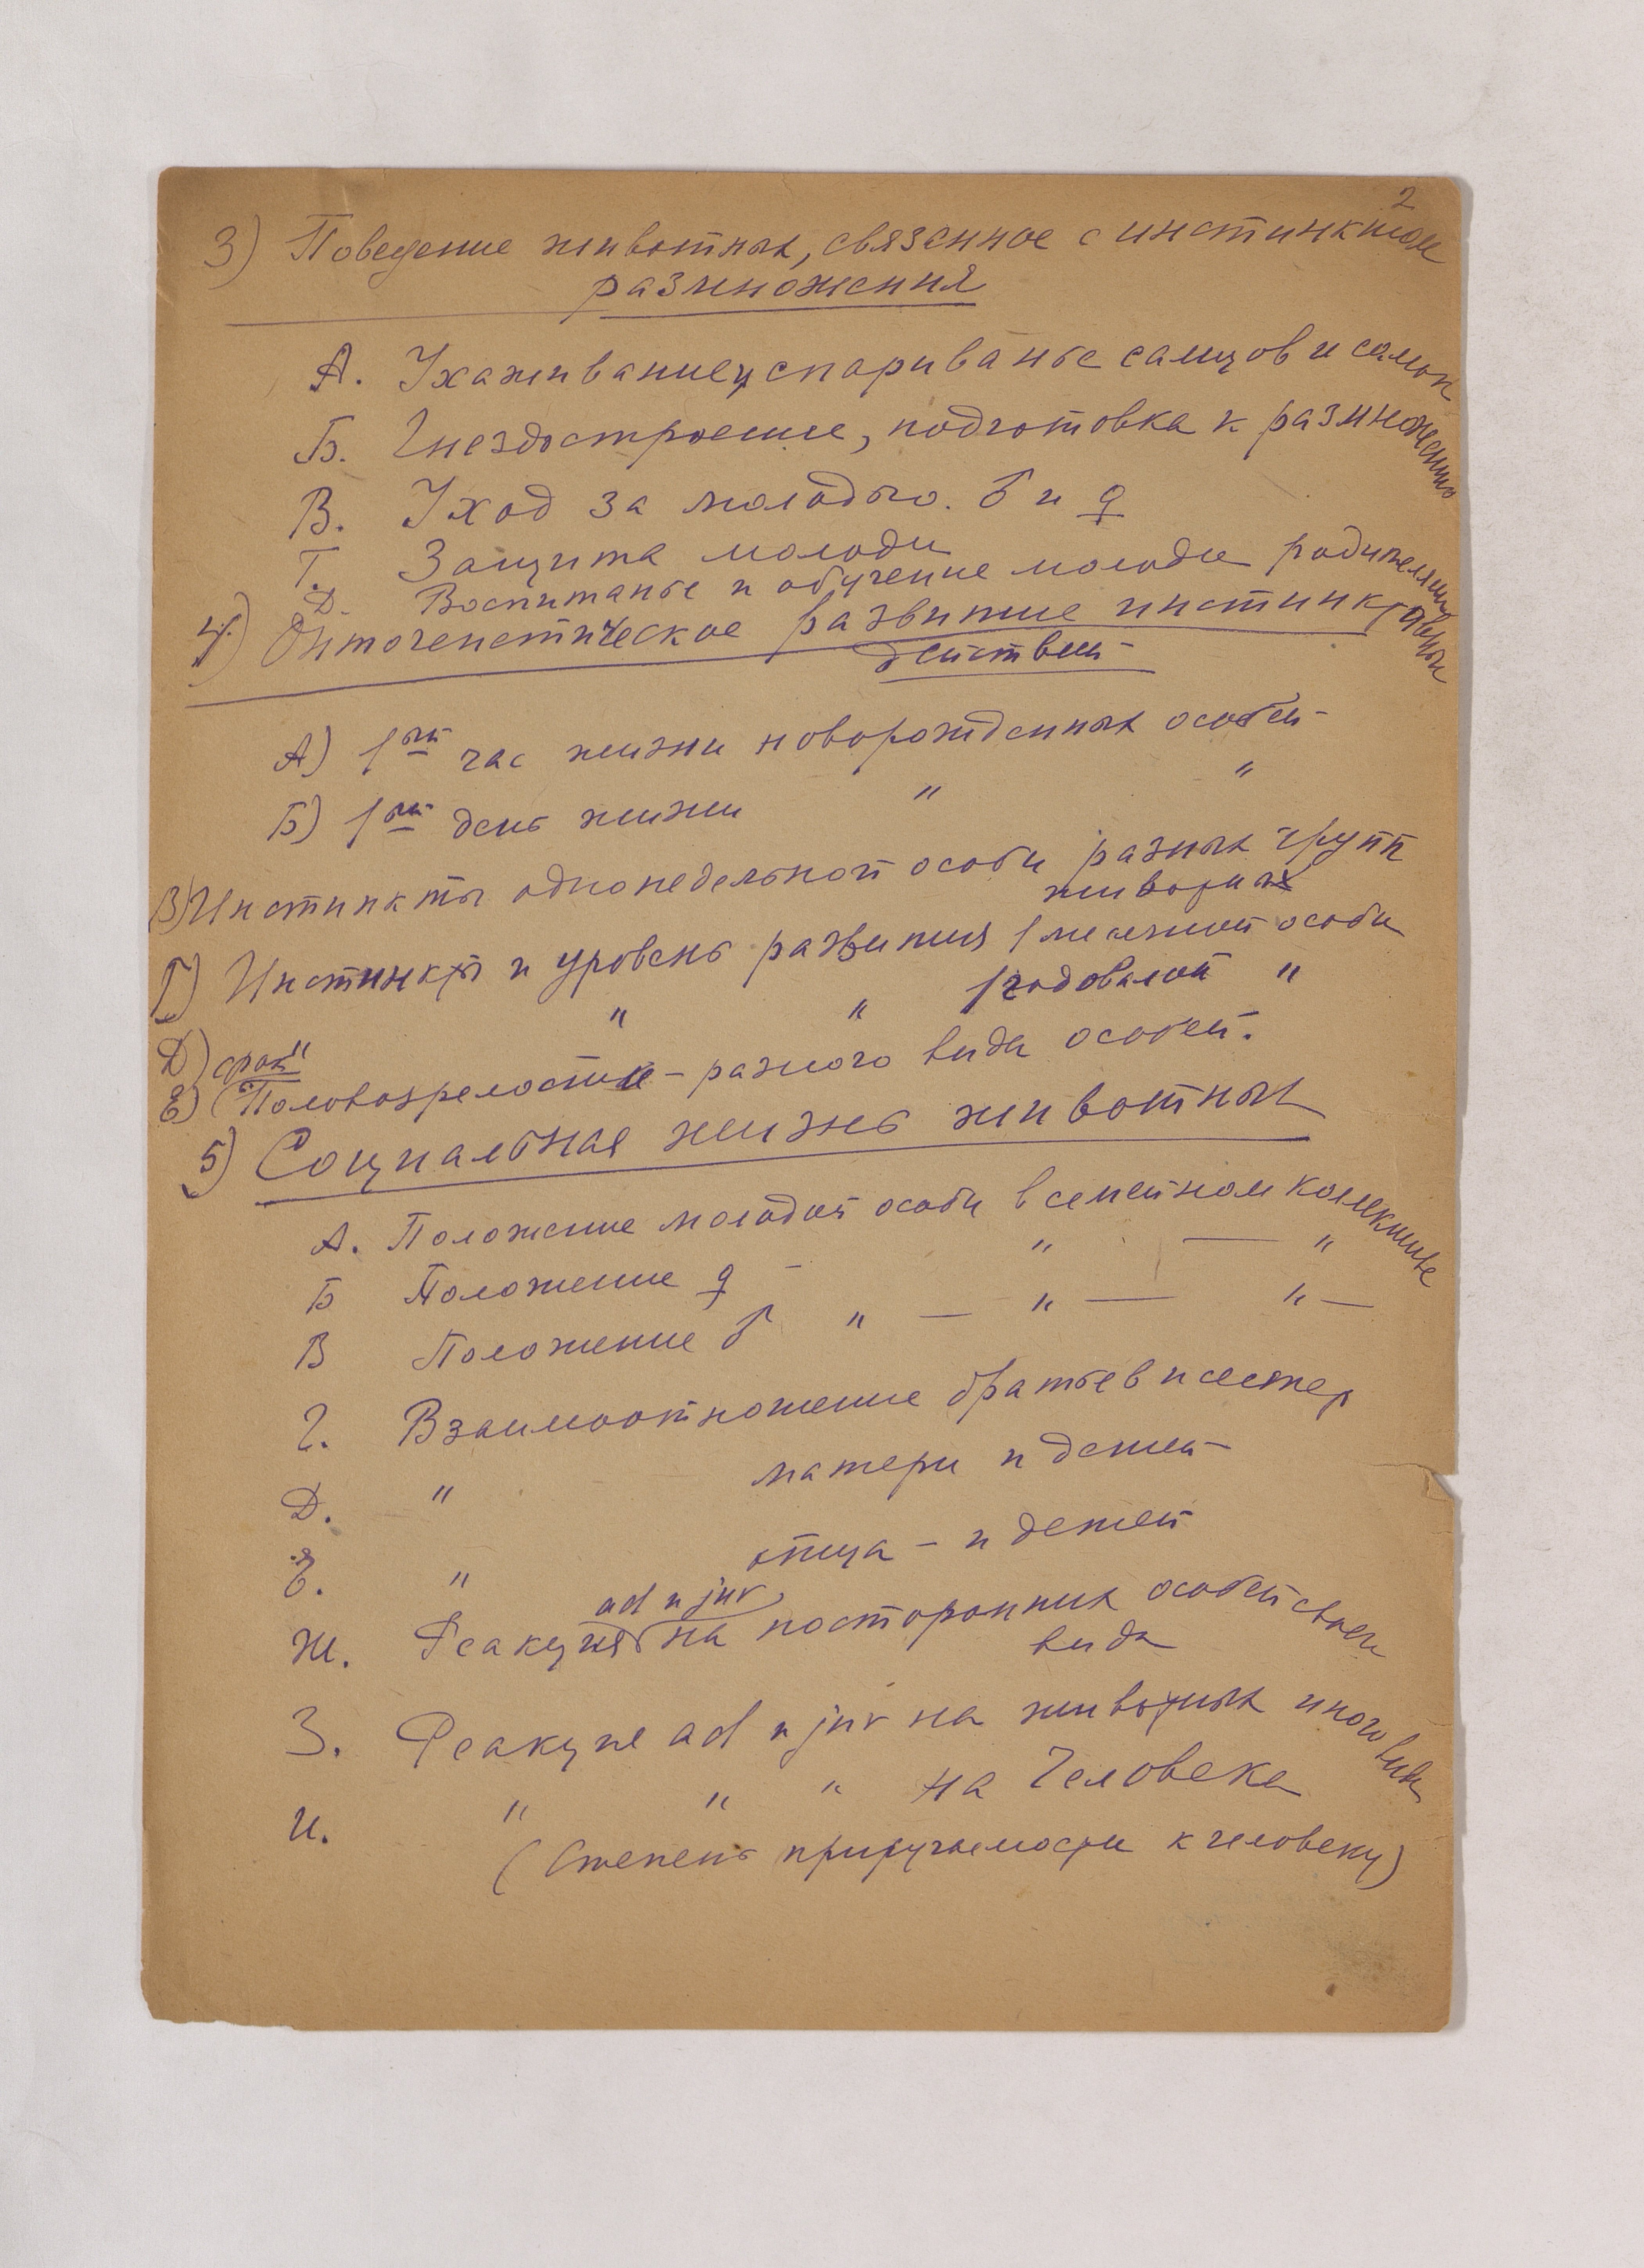 2
3) Поведение животных, связанное с инстинктом
размножения
А. Ухаживание и спариванье самцов и самок
Б. Гнездостроение, подготовка к размножению
В. Уход за молодью. ♂ и ♀
Г. Защита молоди
Д. Воспитанье и обучение молоди родителями
4) Онтогенетическое развитие инстинктивных
действий
А) 1ый час жизни новорожденных особей
Б) 1ый день жизни " "
В) Инстинкты однонедельной особи разных групп
животных
Г) Инстинкты и уровень развития 1 месячной особи
Д) " " " 1 годовалой "
срок
Е) Половозрелости – разного вида особей.
5) Социальная жизнь животных
А. Положение молодой особи в семейном коллективе
Б Положение ♀ – " — "
В Положение ♂ " — " — " —
Г. Взаимоотношение братьев и сестер
Д. " матери и детей
Е. " отца – и детей
ad и juv
Ж. Реакция на посторонних особей своего
вида
З. Реакция ad и juv на животных иного вида
И. " " " на человека
(Степень приручаемости к человеку)